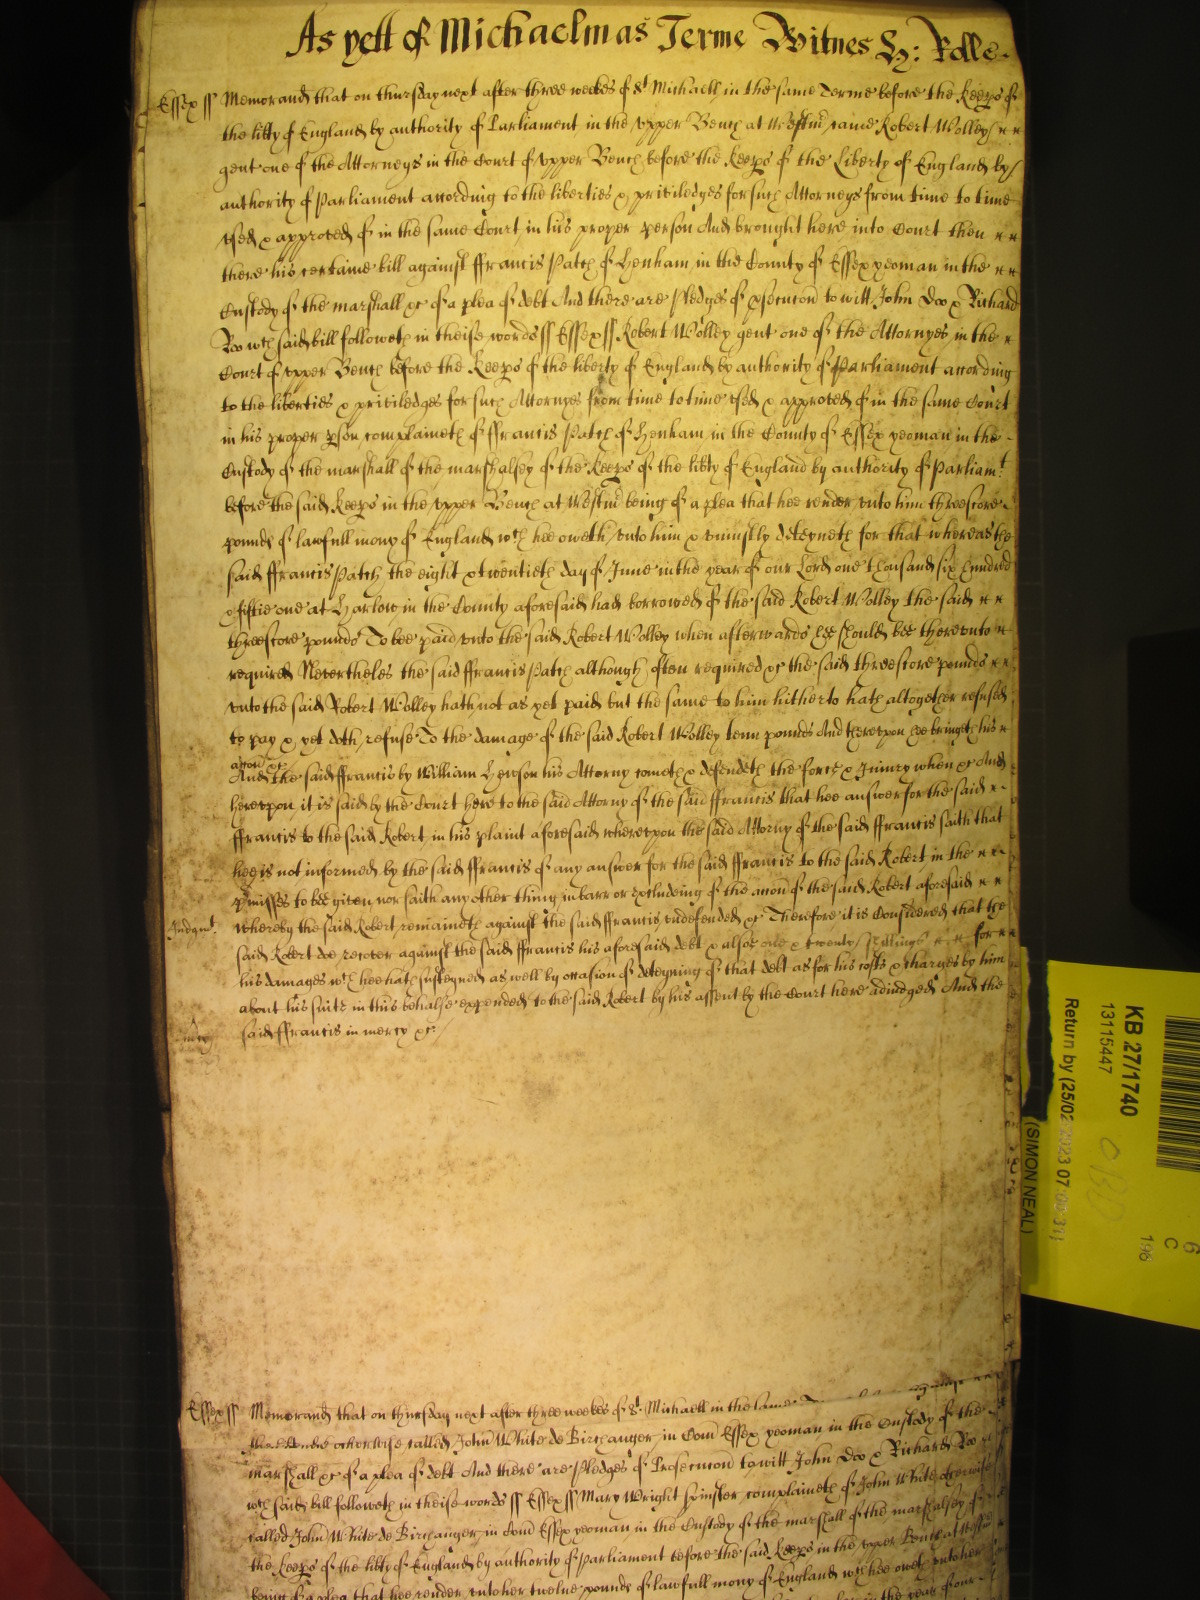 As yett of Michaelmas Terme Witnes H: Rolle
Essex ss Memorand that on thursday next after three weekes of St Michaell in the same Terme before the Keeps of
the libty of England by authority of Parliament in the upper Bench at Westm came Robert Wolley
gent one of the Attorneys in the Court of upper Bench before the Keeps of the Liberty of England by
authority of Parliament according to the liberties & priviledges for such Attorneys from time to time
used & approved of in the same Court in his proper person And brought here into Court then
there his certaine bill against ffrancis Patch of Henham in the County of Essex yeoman in the
Custody of the marshall &c of a plea of debt And there are Pledges of psecucon to witt John Doo & Richard
Roo wch said bill followeth in theise words ss Essex ss Robert Wolley gent one of the Attornyes in the
Court of upper Bench before the Keeps of the liberty of England by authority of Parliament according
to the liberties & priviledges for such Attornyes from time to time used & approved of in the same Court
in his proper pson complaineth of ffrancis Patch of Henham in the County of Essex yeoman in the
Custody of the marshall of the marshalsey of the Keeps of the libty of England by authority of Parliamt
before the said Keeps in the upper Bench at Westm being of a plea that hee render unto him threescore
pounds of lawfull mony of England wch hee oweth unto him & uniustly deteyneth for that whereas the
said ffrancis Patch the eight & twentieth day of June in the year of our Lord one thousand six hundred
& fiftie one at Harlow in the County aforesaid had borrowed of the said Robert Wolley the said
threescore pounds To bee paid unto the said Robert Wolley when afterwards hee should bee thereunto
required Nevertheles the said ffrancis Patch although often required &c the said threescore pounds
unto the said Robert Wolley hath not as yet paid but the same to him hitherto hath altogether refused
to pay & yet doth refuse To the damage of the said Robert Wolley tenn pounds And thereupon hee bringeth his
accon &c
And the said ffrancis by William Hewson his Attorny cometh & defendeth the force & Iniury when &c And
hereupon it is said by the Court here to the said Attorny of the said ffrancis that hee answer for the said
ffrancis to the said Robert in his plaint aforesaid whereupon the said Attorny of the said ffrancis saith that
hee is not informed by the said ffrancis of any answer for the said ffrancis to the said Robert in the
pmisses to bee given nor saith any other thing in barr or excludeing of the accon of the said Robert aforesaid
Judgmt. whereby the said Robert remaineth against the said ffrancis undefended &c Therefore it is Considered that the
said Robert doe recover against the said ffrancis his aforesaid debt & alsoe one & twenty shillings for
his damages wch hee hath susteyned as well by occasion of deteyning of that debt as for his costs & charges by him
about his suite in this behalfe expended to the said Robert by his assent by the Court here adiudged And the
mcy said ffrancis in mercy &c
Essex ss Memorand that on thursday next after three weekes of St Michaell in the same
otherwise called John White de Birchanger in Com Essex yeoman in the Custody of the
marshall &c of a plea of debt And there are Pledges of Prosecucon to witt John Doo & Richard Roo
wch said bill followeth in theise words ss Essex ss Mary Wright spinster complaineth of John White otherwise
called John White de Birchanger in Com Essex yeoman in the Custody of the marshall of the marshalsey of
the Keeps of the libty of England by authority of Parliament before the said Keeps in the upper Bench at Westm
being of a plea that hee render unto her twelve pounds of lawfull mony of England wch hee oweth unto her
in the year of our
KB 27/1740
13115447
Return by (25/02/2023 07:00:31)
(SIMON NEAL)
6
C
196